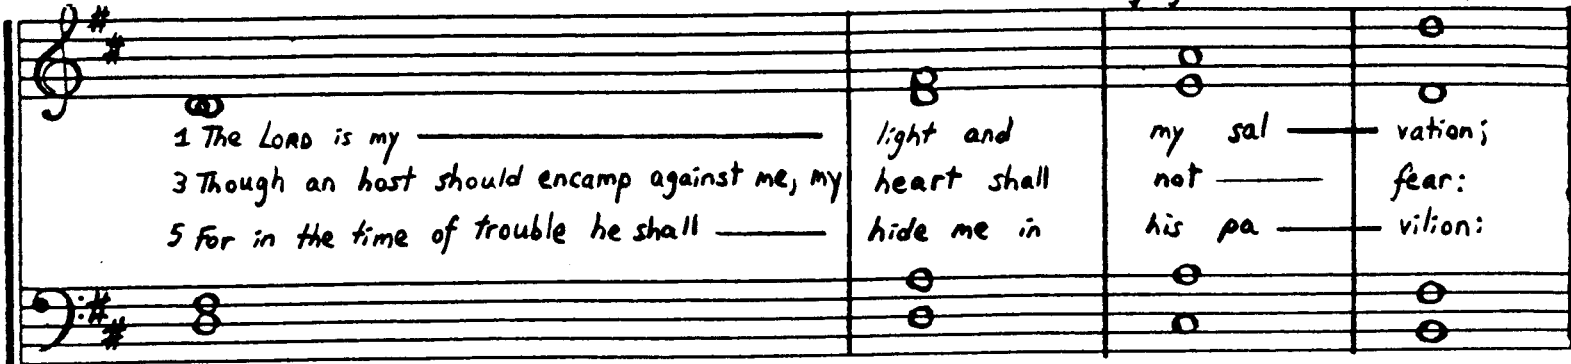 1 The LORD is my light and my sal vation;
3 Though an host should encamp against me, my heart shall not fear:
5 For in the time of trouble he shall hide me in his pa vilion: